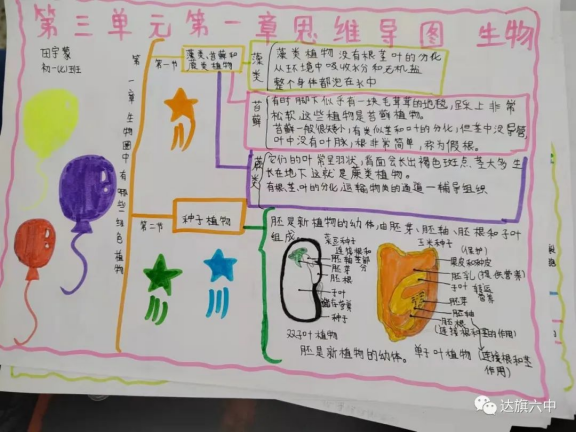 第三单元第一章思维导图 生物
田宇蒙
初一(2)班
第一章 生物圈中有哪些绿色植物
第一节
藻类、苔藓和
蕨类植物
藻类
藻类植物没有根茎叶的分化
从环境中吸收水分和无机盐
整个身体都泡在水中
苔藓
有时脚下似乎有一块毛茸茸的地毯,踩上非常
松软这些植物是苔藓植物。
苔藓一般很矮小,有类似茎和叶的分化,但茎中没导管
叶中没有叶脉,根非常简单,称为假根。
蕨类
它们的叶常呈羽状,背面会长出褐色斑点,茎大多生
长在地下这就是蕨类植物。
有根、茎、叶的分化 运输物质的通道—输导组织
第二节
种子植物
胚是新植物的幼体,由胚芽、胚轴、胚根和子叶
组成
菜豆种子
连接根和
胚轴茎部
分
胚芽
胚根
子叶
种子
双子叶植物
玉米种子
(保护)
果皮和种皮
胚乳(提供营养)
子叶 转运
营养
胚芽
胚轴
胚根
(连接根和茎的作用)
胚是新植物的幼体。
单子叶植物
(连接根和茎
作用)
达旗六中